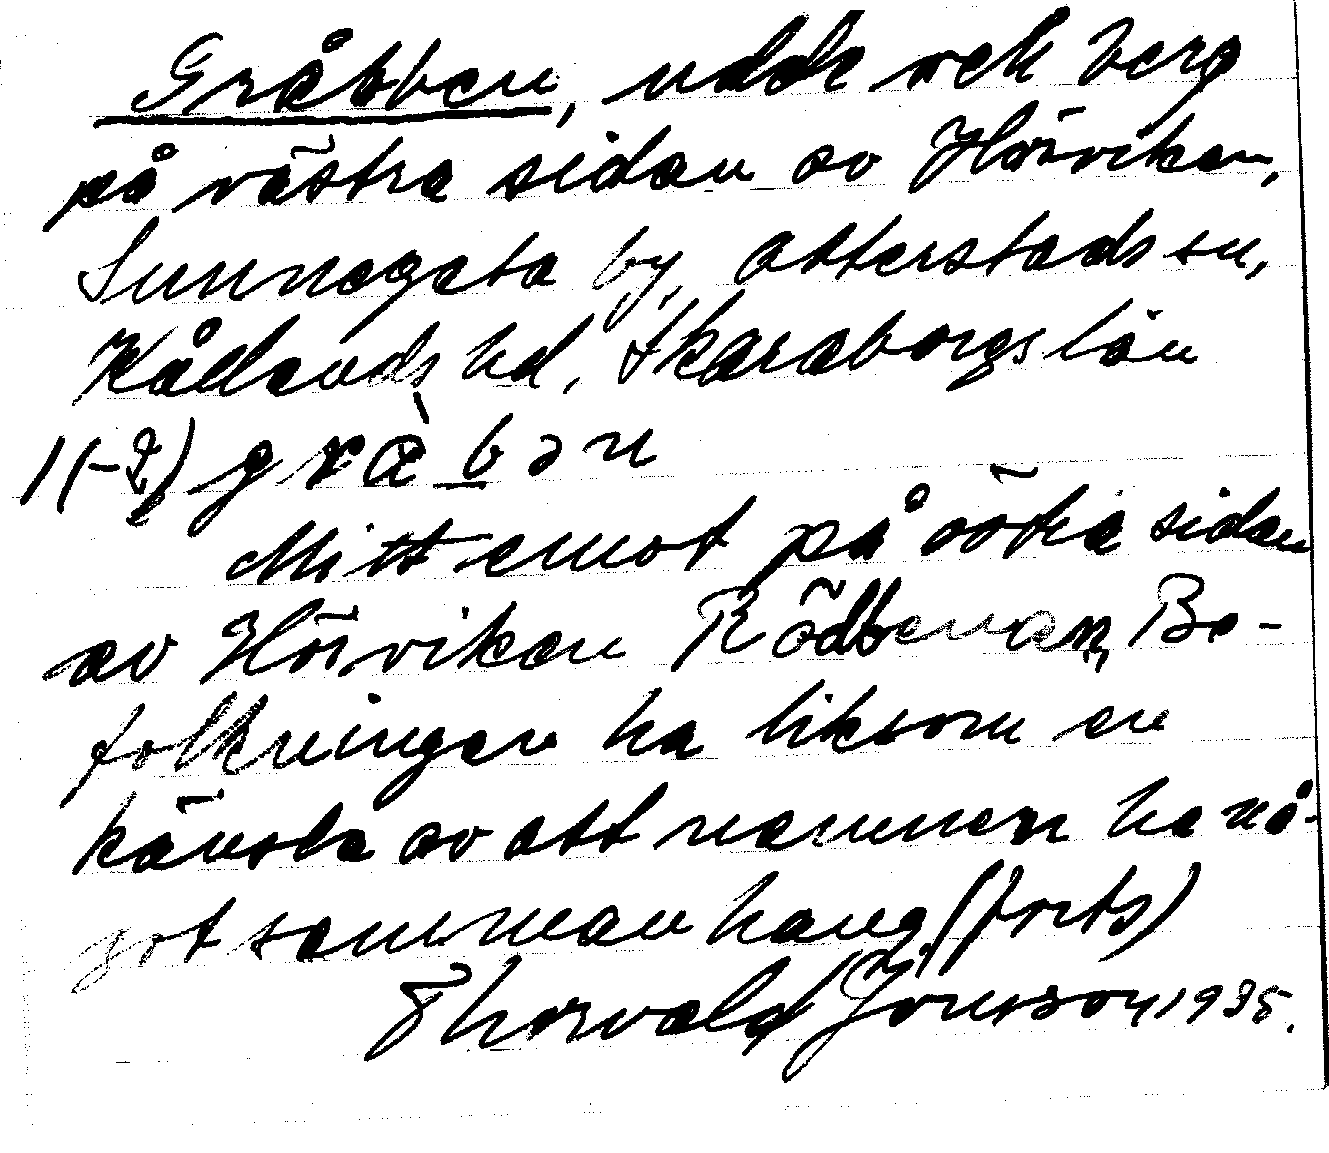 Gråbben, udde och berg
på västra sidan av Hörviken,
Sunnegata by, Otterstads sn,
Kållands hd, Skaraborgs län
gràbən
Mitt emot på östra sidan
av Hörviken Rödbenan, Be-
folkningen ha liksom en
känsla av att namnen ha nå-
got sammanhang (forts)
Thorvald Jonsson 1935.